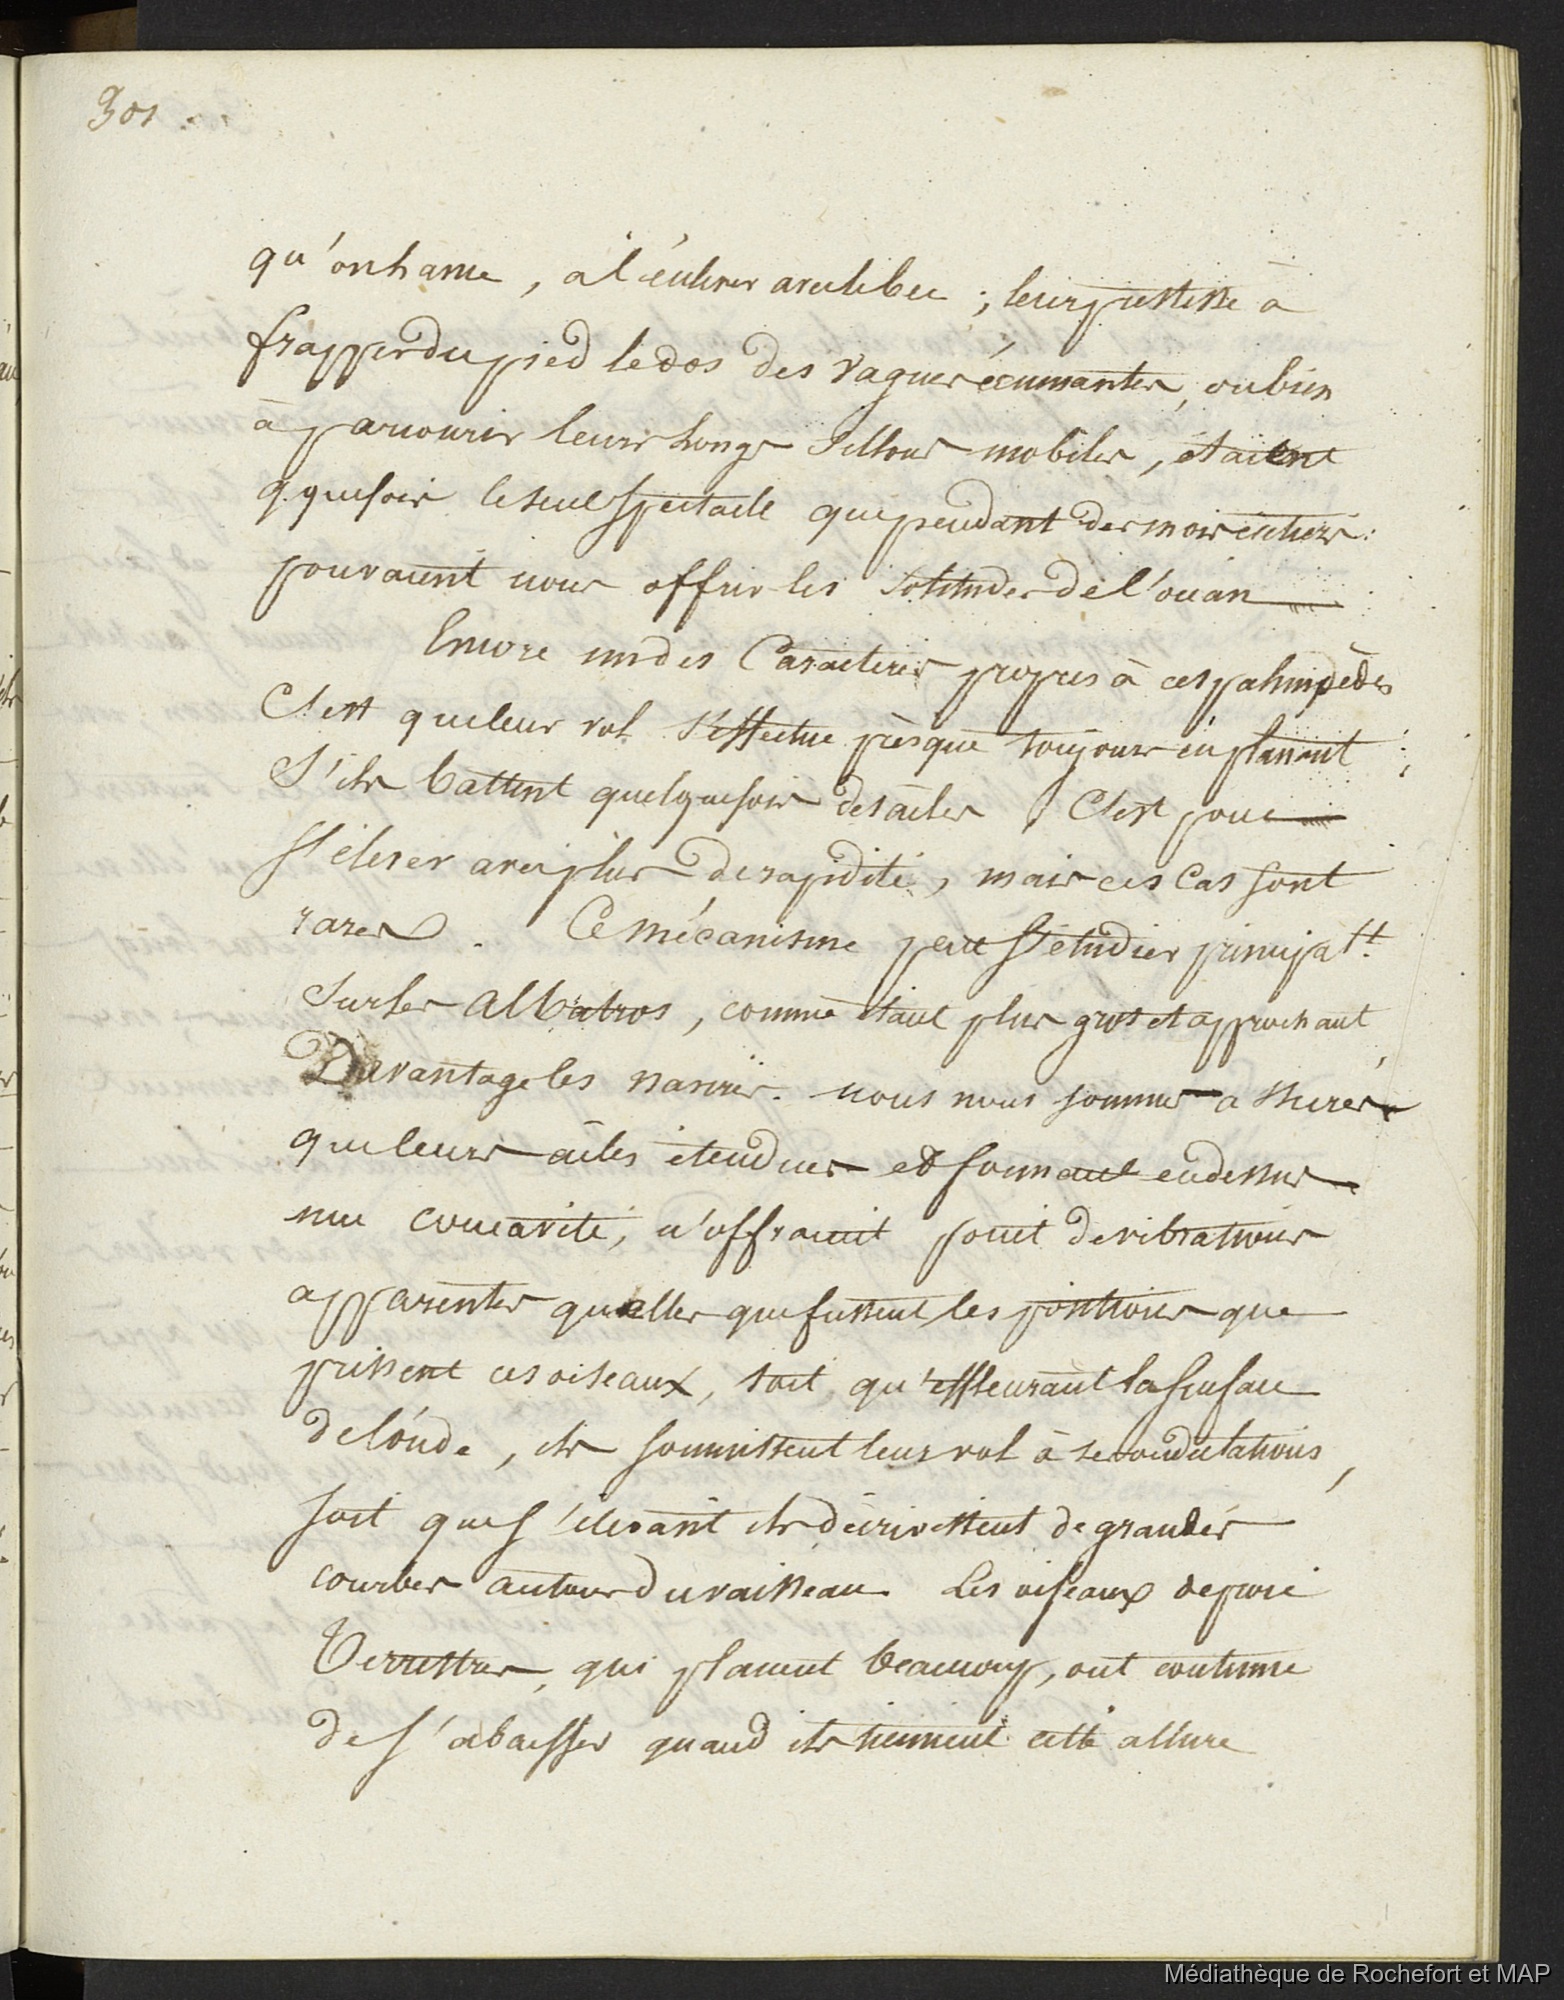 301
qu'on hame, à l'enlever avec le bec; leur justesse à
frapper du pied le dos des vagues écumantes, ou bien
à parcourir leurs longs sillons mobiles, étaient
q.quefois le seul spectacle que pendant des mois entiers
pouvaient nous offrir les solitudes de l'océan
Encore un des Caractères propres à ces palmipèdes
C'est que leur vol s'effectue presque toujours en planant;
S'ils battent quelquefois des ailes, C'est pour
s'élever avec plus de rapidité, mais ces Cas sont
rares. Ce mécanisme peut s'étudier principalt.
Sur les Albatros, comme étant plus gros et approchant
Davantage les navires. nous nous sommes assurés
que leurs ailes étendues et formant en dessus
une concavité, n'offraient point de vibrations
apparentes quelles que fussent les positions que
prissent ces oiseaux, soit qu'effleurant la surface
de l'onde, ils soumissent leur vol à ses ondulations,
soit que s'élevant ils décrivissent de grandes
courbes autour du vaisseau. Les oiseaux de proie
Terrestres, qui planent beaucoup, ont coutume
de s'abaisser quand ils tiennent cette allure
Médiathèque de Rochefort et MAP